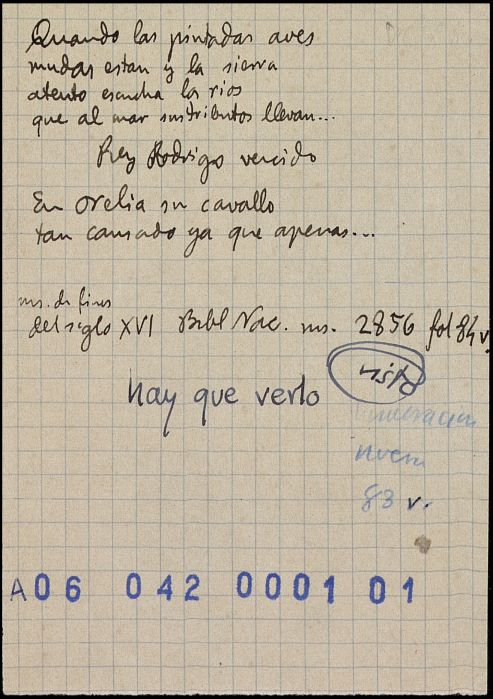 Quando las pintadas aves
mudas estan y la sierra
atento escucha los rios
que al mar sus tributos llevan...
Rey Rodrigo vencido
En orelia su cavallo
tan cansado ya que apenas...
ms. de fines
del siglo XVI Bibl Nac. ms. 2856 fol 84 v.
visto
hay que verlo
numeracion
nueva
83 v.
A06 042 0001 01